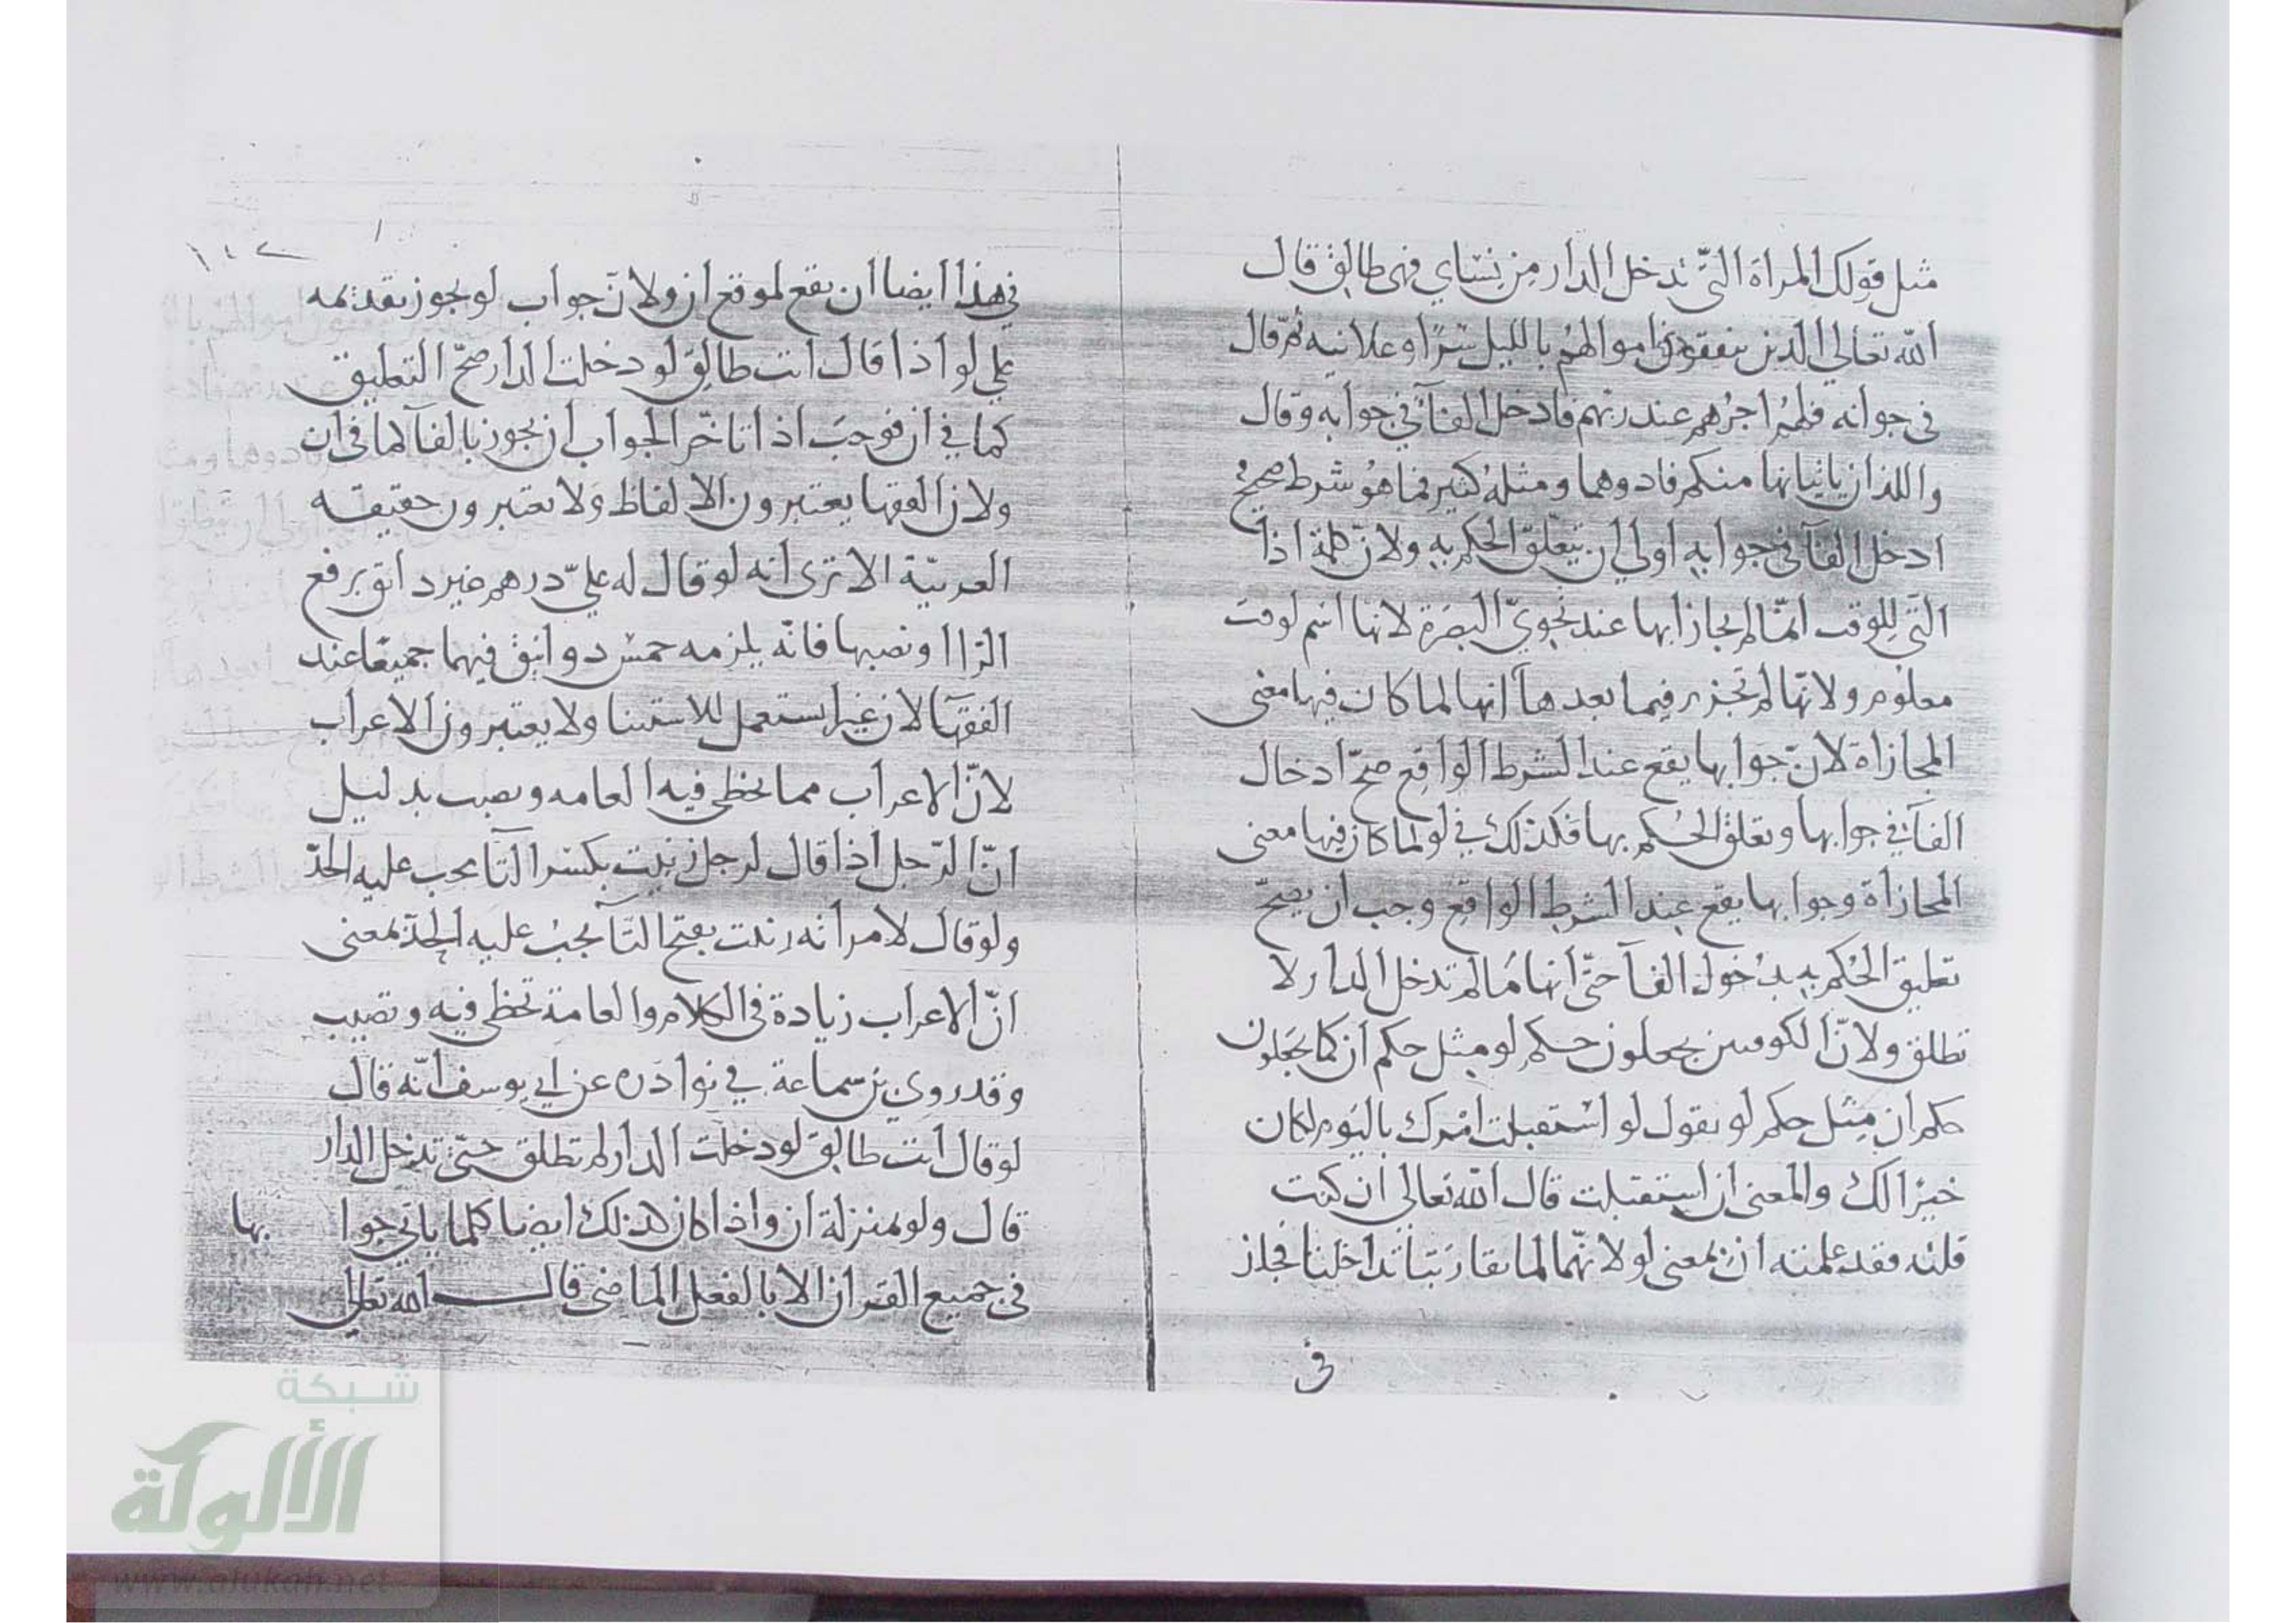 مثل قولك المرأة التي تدخل الدار من نساي فهي طالق قال
الله تعالى الذين ينفقون اموالهم بالليل سرًا وعلانيه ثم قال
في جوابه فلهم اجرهم عند ربهم فادخل الفآ في جوابه وقال
واللذان ياتيانها منكم فاذوهما ومثله كثير فما هو شرط صحيح
ادخل الفآ في جوابه اولى ان يتعلق الحكم به ولان كلمة اذا
التي للوقت انما لم يجاز بها عند نحويّ البصرة لانها اسم لوقت
معلوم ولانها لم تجزم فيما بعدها انها لما كان فيها معنى
المجازاة لانّ جوابها يقع عند الشرط الواقع صحّ ادخال
الفآ في جوابها وتعلق الحكم بها فكذلك في لو لما كان فيها معنى
المجازاة وجوابها يقع عند الشرط الواقع وجب ان يصحّ
تعليق الحكم به بدخول الفآ حتى انها ما لم تدخل الدار لا
تطلق ولانّ الكوفيين يجعلون حكم لو مثل حكم ان كما يجعلون
حكم ان مثل حكم لو نقول لو استقبلت امرك باليوم لكان
خيرًا لك والمعنى ان استقبلت قال الله تعالى ان كنت
قلته فقد علمته ان بمعنى لو لانهما لما تقاربتا تداخلتا فجاز
في
في هذا ايضا ان يقع لو موقع ان ولانّ جواب لو يجوز تقديمه
على لو اذا قال انت طالق لو دخلت الدار صحّ التعليق
كما في ان فوجب اذا تاخّر الجواب ان يجوز بالفآ كما في ان
ولان الفقها يعتبرون الالفاظ ولا يعتبرون حقيقة
العربيّة الا ترى انه لو قال له عليّ درهم غير دانق برفع
الرا او نصبها فانّه يلزمه خمس دوانيق فيهما جميعًا عند
الفقهآ لان غير يستعمل للاستثنا ولا يعتبرون الاعراب
لانّ الاعراب مما يخطي فيه العامه وتصيب بدليل
انّ الرّجل اذا قال لرجل زنيت بكسر التآ يجب عليه الحدّ
ولو قال لامراته زنيت بفتح التآ يجب عليه الحدّ بمعنى
انّ الاعراب زيادة في الكلام والعامة تخطي فيه وتصيب
وقد روى بن سماعة في نوادره عن ابي يوسف انّه قال
لو قال انت طالق لو دخلت الدار لم تطلق حتى تدخل الدار
قال ولو بمنزلة ان واذا كان كذلك ايضا كلما ياتي جوا بها
في جميع القران الا بالفعل الماضي قال الله تعالى
شبكة
الألوكة
www.alukah.net